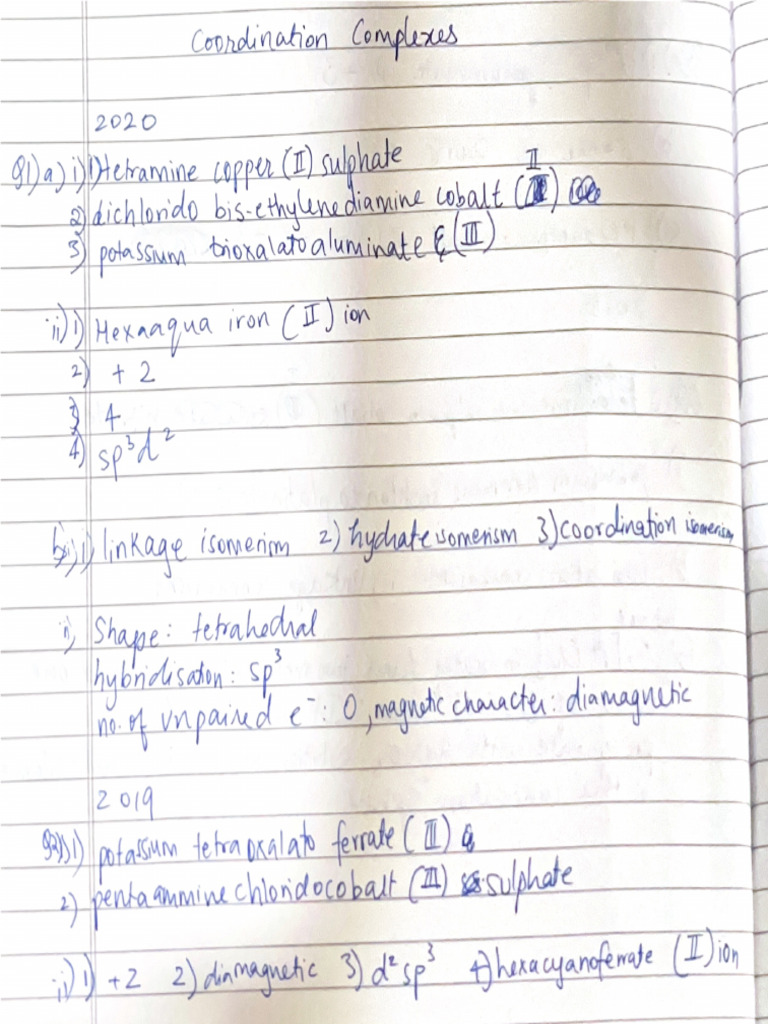 Coordination Complexes
2020
Q1) a) i) 1) tetramine copper (II) sulphate
2) dichlorido bis-ethylenediamine cobalt (II)
3) potassium trioxalatoaluminate (III)
ii) 1) Hexaaqua iron (II) ion
2) +2
3) 4
4) sp³d²
b) i) linkage isomerism 2) hydrate isomerism 3) coordination isomerism
ii) Shape: tetrahedral
hybridisaton: sp³
no. of unpaired e⁻: 0, magnetic character: diamagnetic
2019
1) potassium tetraoxalato ferrate (III)
2) pentaammine chloridocobalt (III) sulphate
ii) 1) +2 2) diamagnetic 3) d²sp³ 4) hexacyanoferrate (II) ion